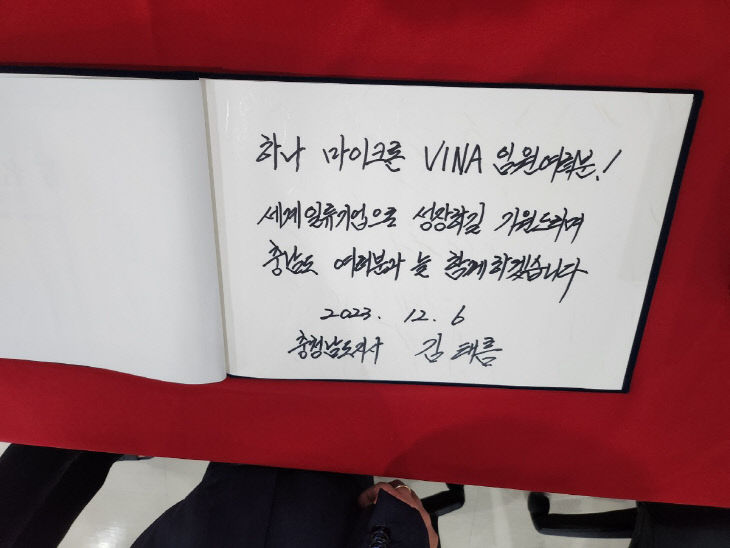 하나 마이크론 VINA 임원여러분!
세계일류기업으로 성장하길 기원드리며
충남도 여러분과 늘 함께하겠습니다
2023. 12. 6
충청남도지사 김태흠